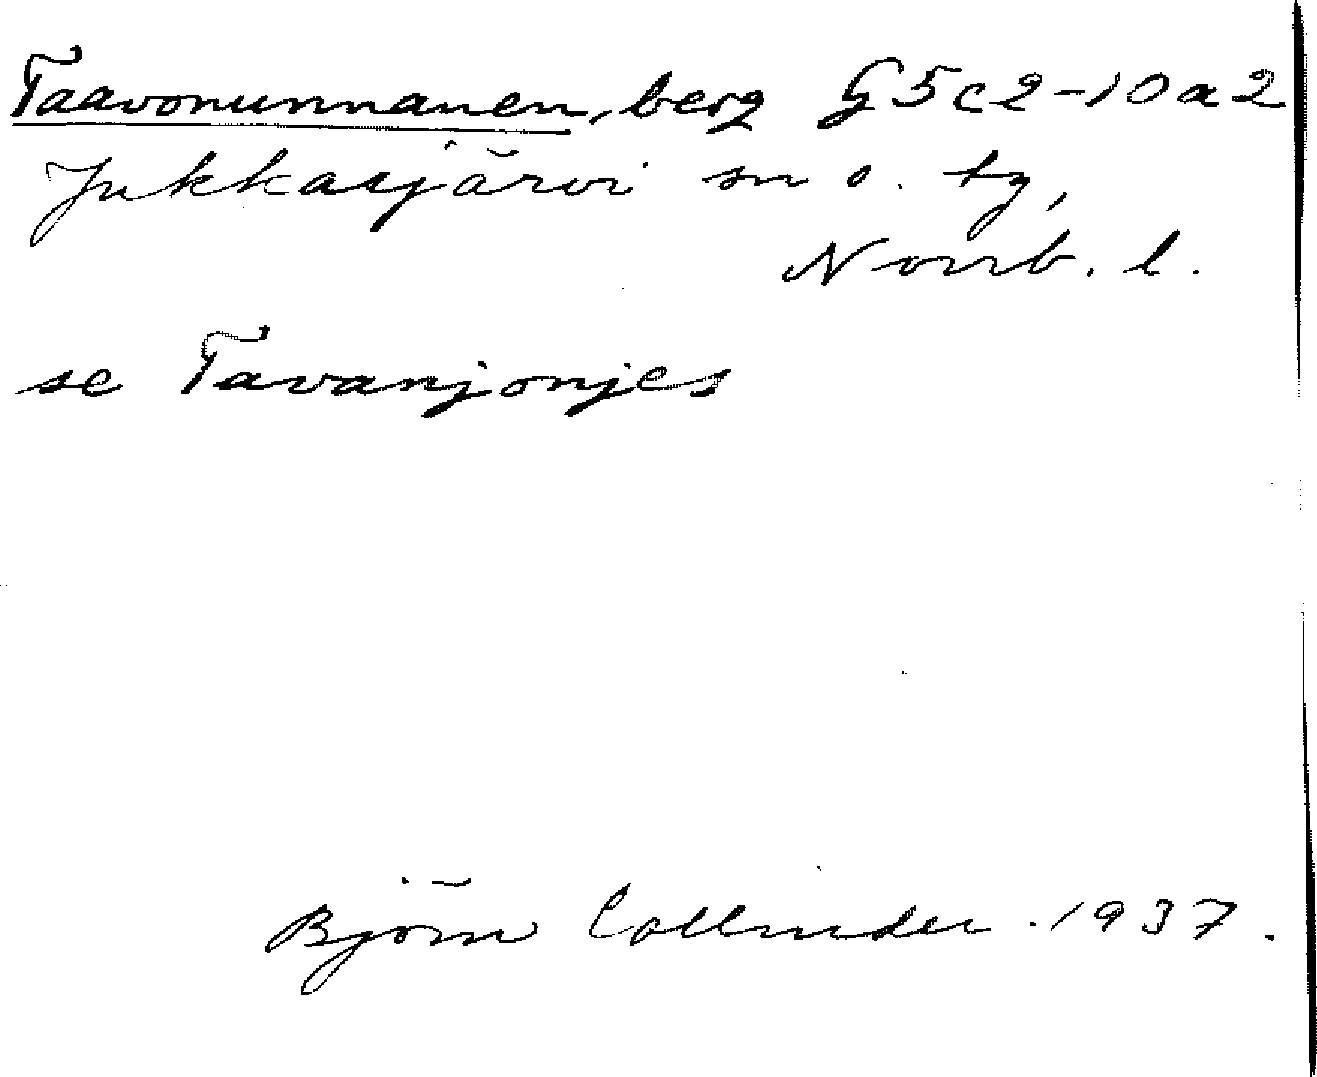 Taavonunnanen, berg G5c2-10a2
Jukkasjärvi sn o. tg,
Norrb. l.
se Tavanjonjes
Björn Collinder. 1937.